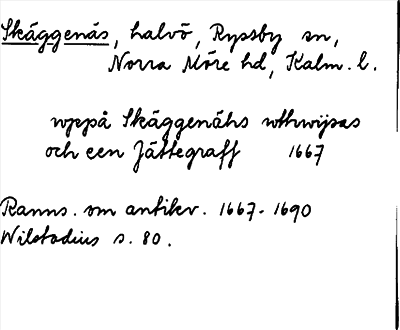 Skäggenäs, halvö, Ryssby sn,
Norra Möre hd, Kalm. l.
wppå Skäggenähs wthwijsas
och een Jättegraff 1667
Ranns. om antikv. 1667-1690
Wilstadius s. 80.